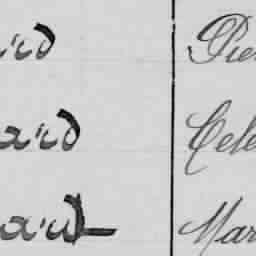 ard Pie
ard Cele
ard Mar